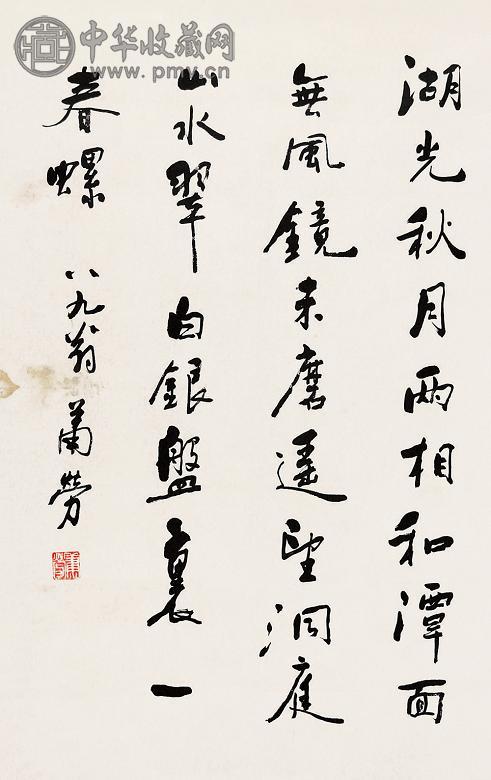 中华收藏网
www.pmy.cn
湖光秋月兩相和潭面
無風鏡未磨遥望洞庭
山水翠白銀盤裏一
春螺
八九翁蕭勞